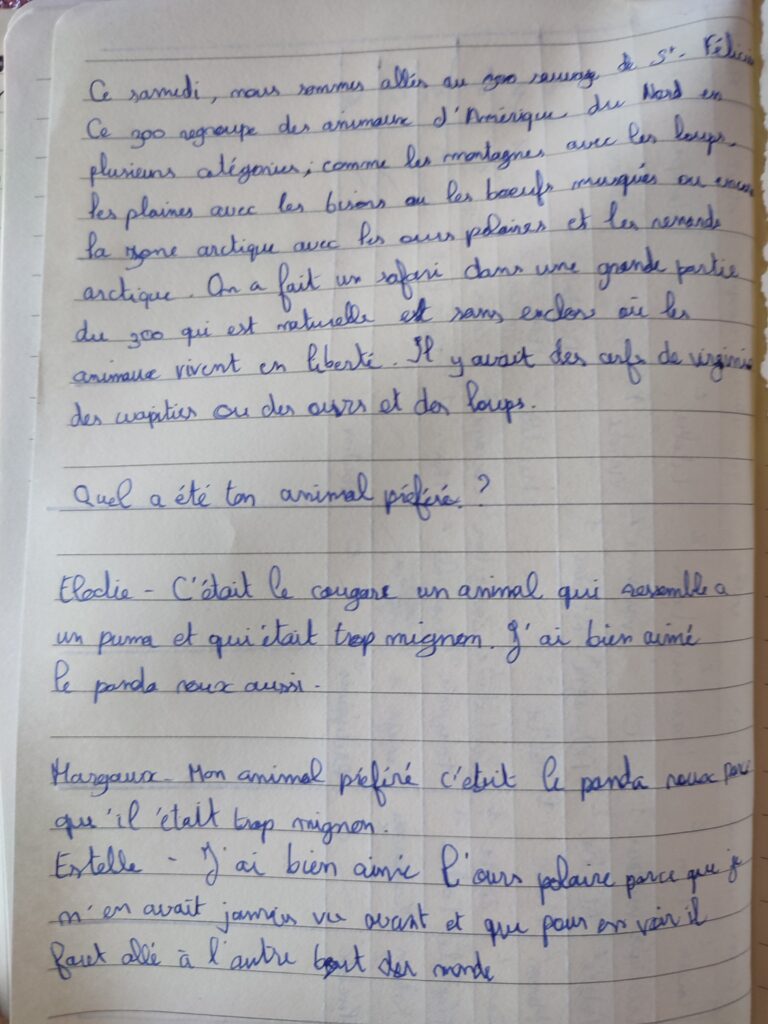 Ce samedi, nous sommes allés au zoo sauvage de St-Félicien
Ce zoo regroupe des animaux d'Amérique du Nord en
plusieurs catégories, comme les montagnes avec les loups,
les plaines avec les bisons ou les boeufs musqués ou encore
la zone arctique avec les ours polaires et les renards
arctique. On a fait un safari dans une grande partie
du zoo qui est naturelle et sans enclos où les
animaux vivent en liberté. Il y avait des cerfs de virginie
des wapities ou des ours et des loups.
Quel a été ton animal préféré ?
Elodie - C'était le cougare un animal qui ressemble a
un puma et qui était trop mignon. J'ai bien aimé
le panda roux aussi.
Margaux - Mon animal préféré c'était le panda roux parce
qu'il était trop mignon.
Estelle - J'ai bien aimé l'ours polaire parce que je
n'en avait jamais vu avant et que pour en voir il
faret allé à l'autre bout des monde